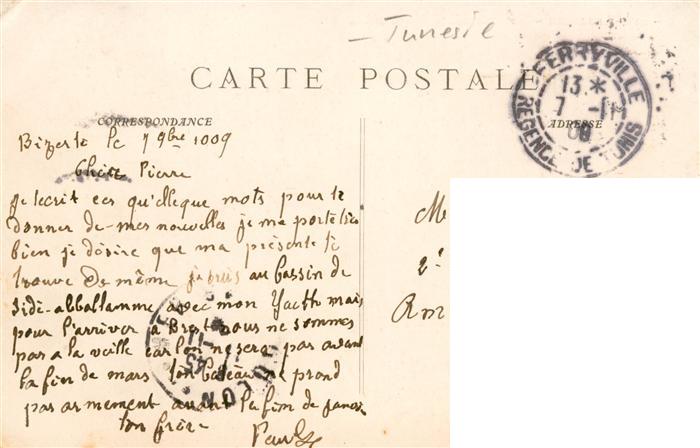 Tunesie
CARTE POSTALE
FERRYVILLE
13 *
7 -11
09
REGENCE DE TUNIS
CORRESPONDANCE
ADRESSE
Bizerte le 7 9bre 1009
Cher Pierre
je tecrit ces qu'elleque mots pour te
donner de-mes nouvelles je me porte très
bien je désire que ma présente te
trouve de même je suis au bassin de
Sidi-abdallamme avec mon Yacth mais
pour l'arriver à Brest nous ne sommes
pas a la veille car lon ne sera pas avant
la fin de mars ton bateau ne prend
pas armement avant la fin de janv
ton frère
Paul
2e